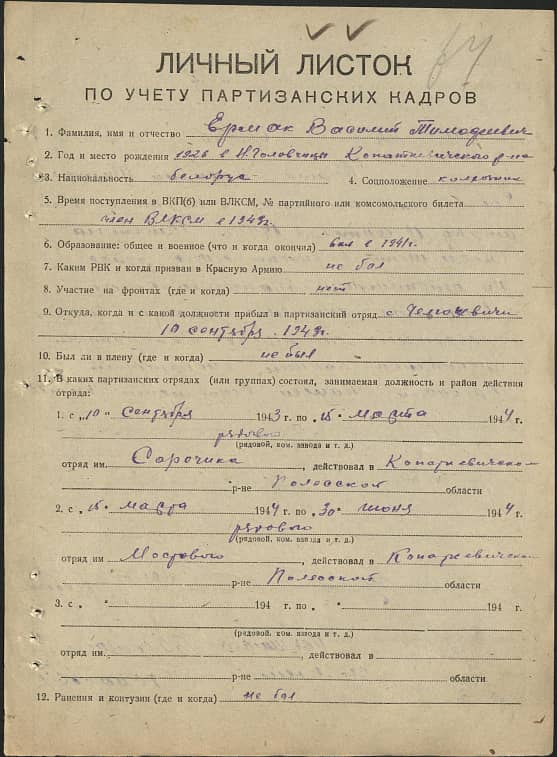 ЛИЧНЫЙ ЛИСТОК
ПО УЧЕТУ ПАРТИЗАНСКИХ КАДРОВ
1. Фамилия, имя и отчество Ермак Василий Тимофеевич
2. Год и место рождения 1926 в Н. Головчицы р-на
3. Национальность белорус 4. Соцположение колхозник
5. Время поступления в ВКП(б) или ВЛКСМ, № партийного или комсомольского билета
член ВЛКСМ с 1943г.
6. Образование: общее и военное (что и когда окончил) 1941г.
7. Каким РВК и когда призван в Красную Армию не был
8. Участие на фронтах (где и когда) нет
9. Откуда, когда и с какой должности прибыл в партизанский отряд с
10 сентября 1943г.
10. Был ли в плену (где и когда) не был
11. В каких партизанских отрядах (или группах) состоял, занимаемая должность и район действия
отряда:
1. с „10" сентября 1943 г. по „15" марта 1944 г.
рядового
(рядовой, ком. взвода и т. д.)
отряд им. Сорочика, действовал в
р-не Полесской области
2. с „15" марта 1944 г. по „30" июня 1944 г.
рядового
(рядовой, ком. взвода и т. д.)
отряд им. , действовал в
р-не Полесской области
3. с „ " 194 г. по „ " 194 г.
(рядовой, ком. взвода и т. д.)
отряд им. , действовал в
р-не области.
12. Ранения и контузии (где и когда) не был